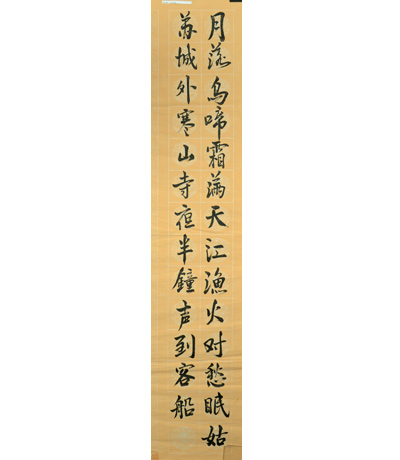 月落乌啼霜满天江渔火对愁眠姑
苏城外寒山寺夜半鐘声到客船